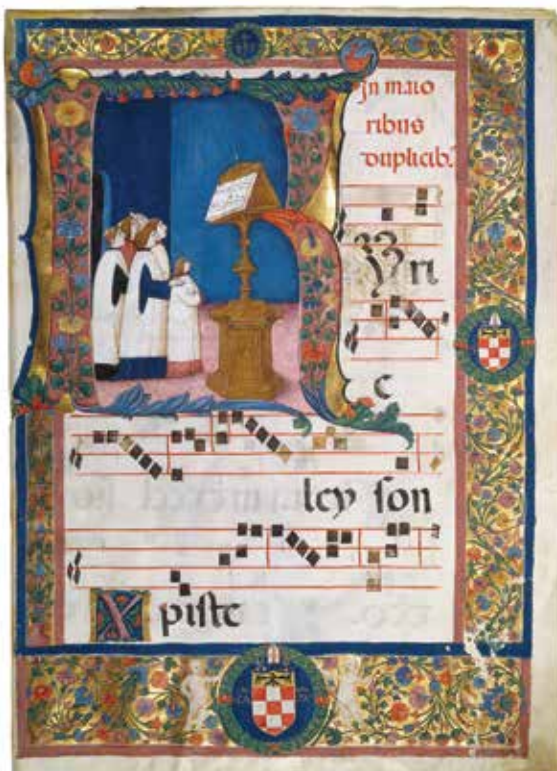 In maio
ribus
duplicib.
KYri
e
ley son
Xpiste